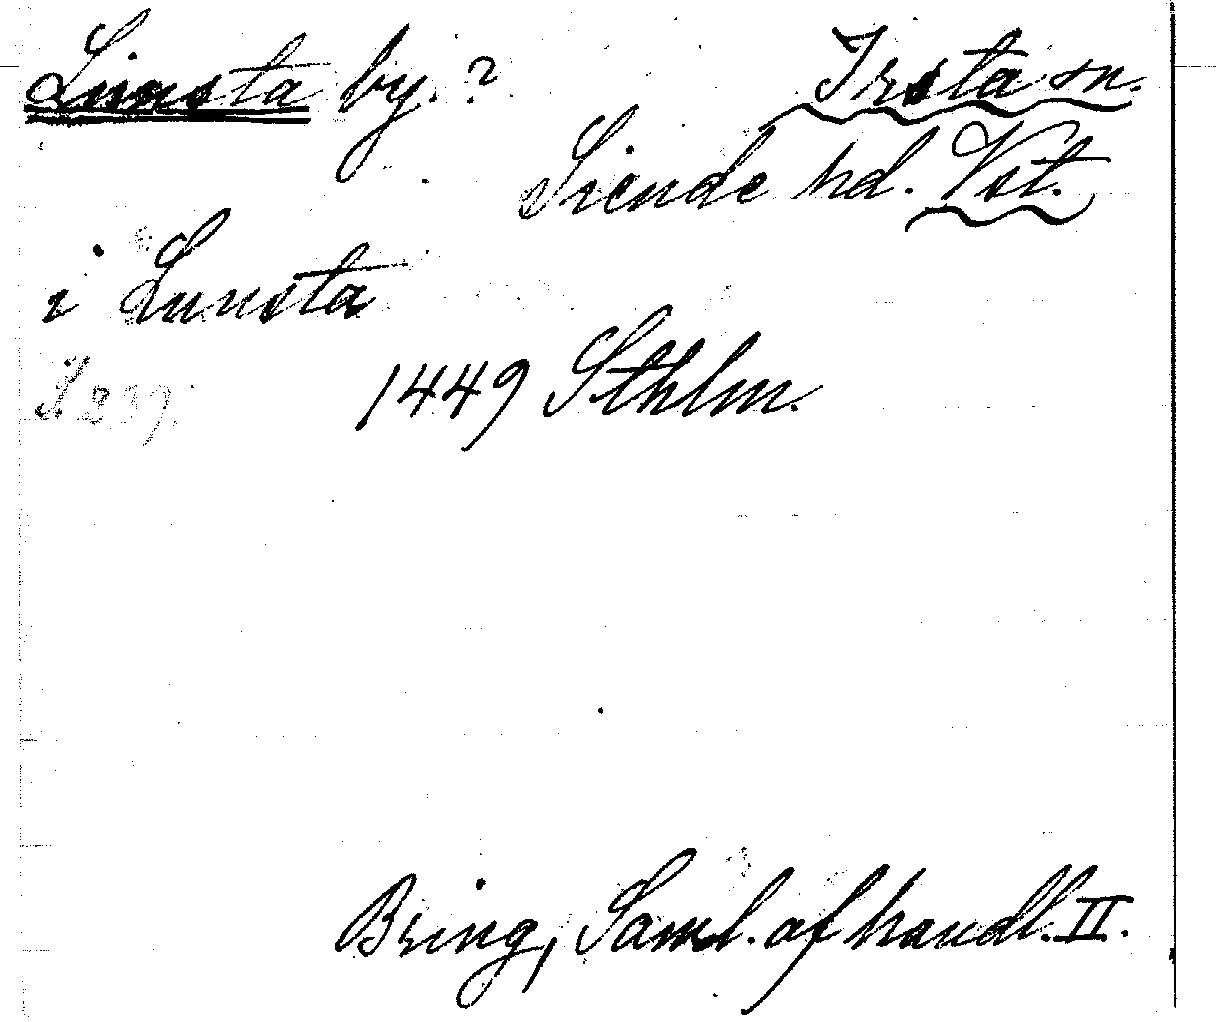 Limsta by. ? Irsta sn.
Siende hd. Vst.
i Lunsta
S. 237. 1449 Sthlm.
Bring, Saml. af handl. II.